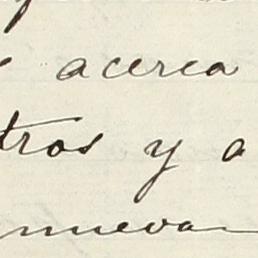 acerca
tros y a
nueva